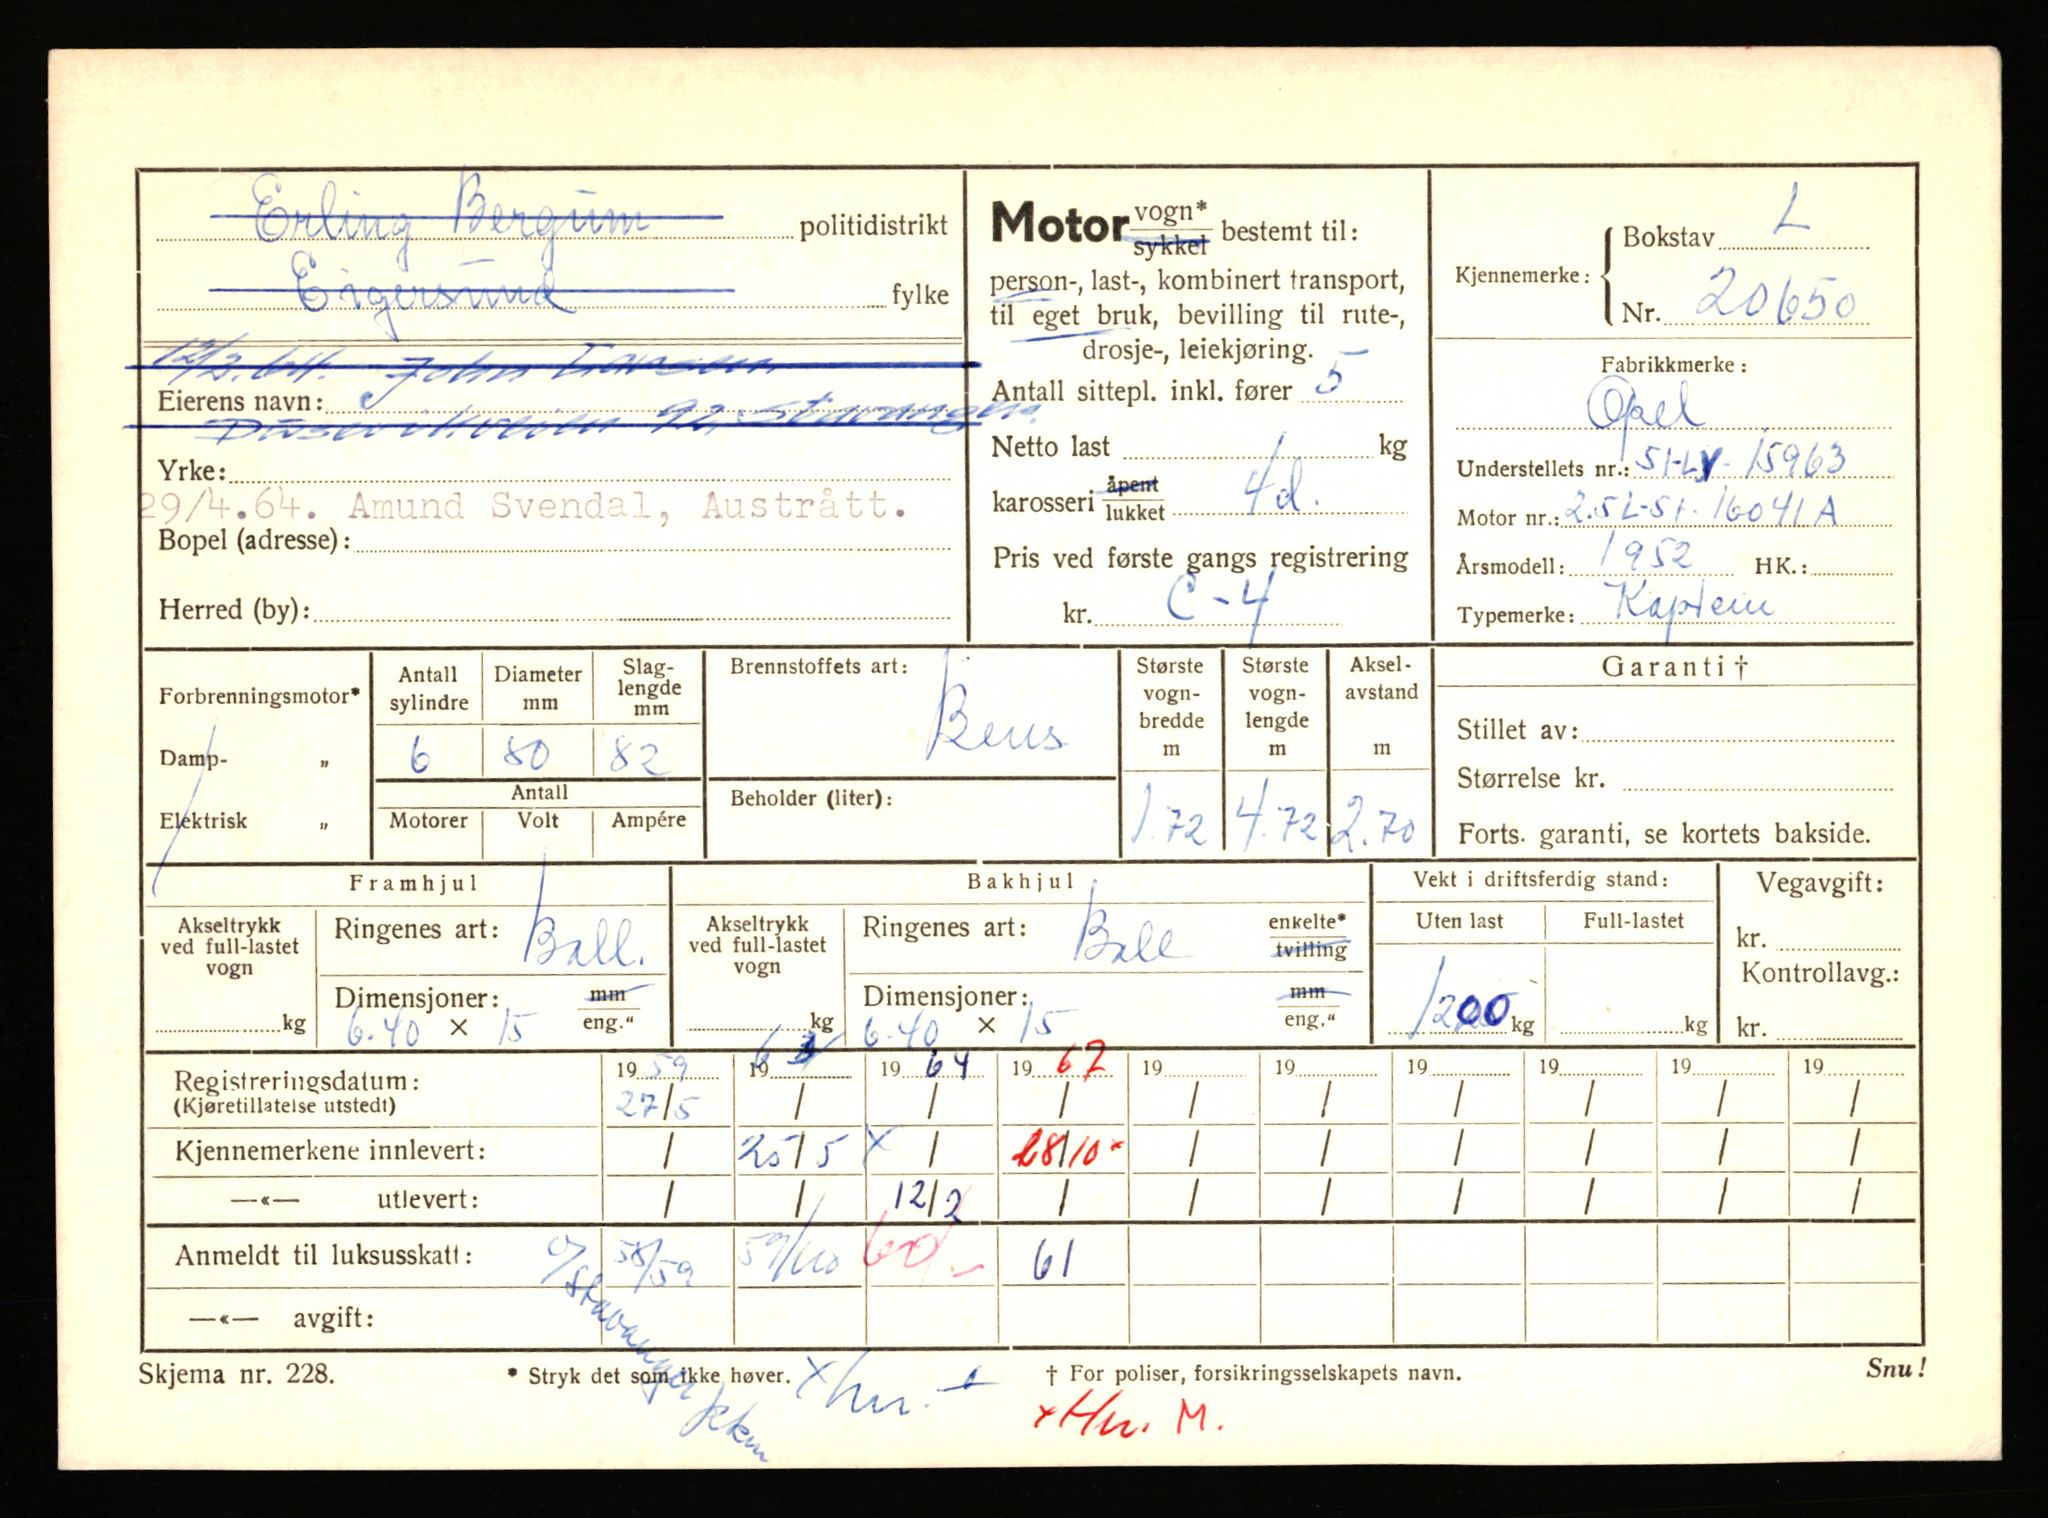 Erling Bergum politidistrikt
Eigersund fylke
12/2.64. John
Eierens navn:
92, Stavanger.
Yrke:
29/4.64. Amund Svendal, Austrått.
Bopel (adresse):
Herred (by):
Motor vogn* / sykkel bestemt til:
person-, last-, kombinert transport,
til eget bruk, bevilling til rute-,
drosje-, leiekjøring.
Antall sittepl. inkl. fører 5
Netto last kg
karosseri åpent / lukket 4d.
Pris ved første gangs registrering
kr. C-4
Kjennemerke: Bokstav L
Nr. 20650
Fabrikkmerke:
Opel
Understellets nr.: 51-LV-15963
Motor nr.: 2.5L-51-16041A
Årsmodell: 1952 HK.:
Typemerke: Kaptein
Forbrenningsmotor*
Damp- „
Elektrisk „
Antall sylindre Diameter mm Slag-lengde mm
6 80 82
Antall
Motorer Volt Ampére
Brennstoffets art: Bens
Beholder (liter):
Største vogn-bredde m Største vogn-lengde m Aksel-avstand m
1.72 4.72 2.70
Garanti †
Stillet av:
Størrelse kr.
Forts. garanti, se kortets bakside.
Framhjul
Akseltrykk ved full-lastet vogn
kg
Ringenes art: Ball.
Dimensjoner: mm / eng."
6.40 × 15
Bakhjul
Akseltrykk ved full-lastet vogn
kg
Ringenes art: Ball enkelte* / tvilling
Dimensjoner: mm / eng."
6.40 × 15
Vekt i driftsferdig stand:
Uten last Full-lastet
1200 kg kg
Vegavgift:
kr.
Kontrollavg.:
kr.
Registreringsdatum: 19 59 19 63 19 64 19 67 19 19 19 19 19 19
(Kjøretillatelse utstedt) 27/5 / / / / / / / / /
Kjennemerkene innlevert: / 25/5 x / 28/10 x / / / / / /
—«— utlevert: / / 12/2 / / / / / / /
Anmeldt til luksusskatt: 58/59 59/60 60 61
—«— avgift:
o/ Stavanger
Skjema nr. 228. * Stryk det som ikke høver. † For poliser, forsikringsselskapets navn. Snu!
x hu.
x Hu. M.